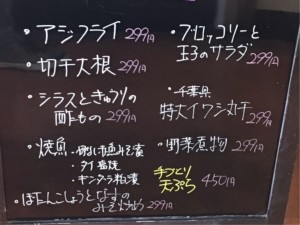 ・アジフライ 299円
・切干大根 299円
・シラスときゅうりの
酢もの 299円
・焼魚
・タイ塩焼
・キンダラ粕漬
ぼたんこしょうとなすの
みそ炒め 299円
・ブロッコリーと
玉子のサラダ 299円
・千葉県
特大イワシ丸干 299円
・野菜煮物 299円
手づくり
天ぷら 450円